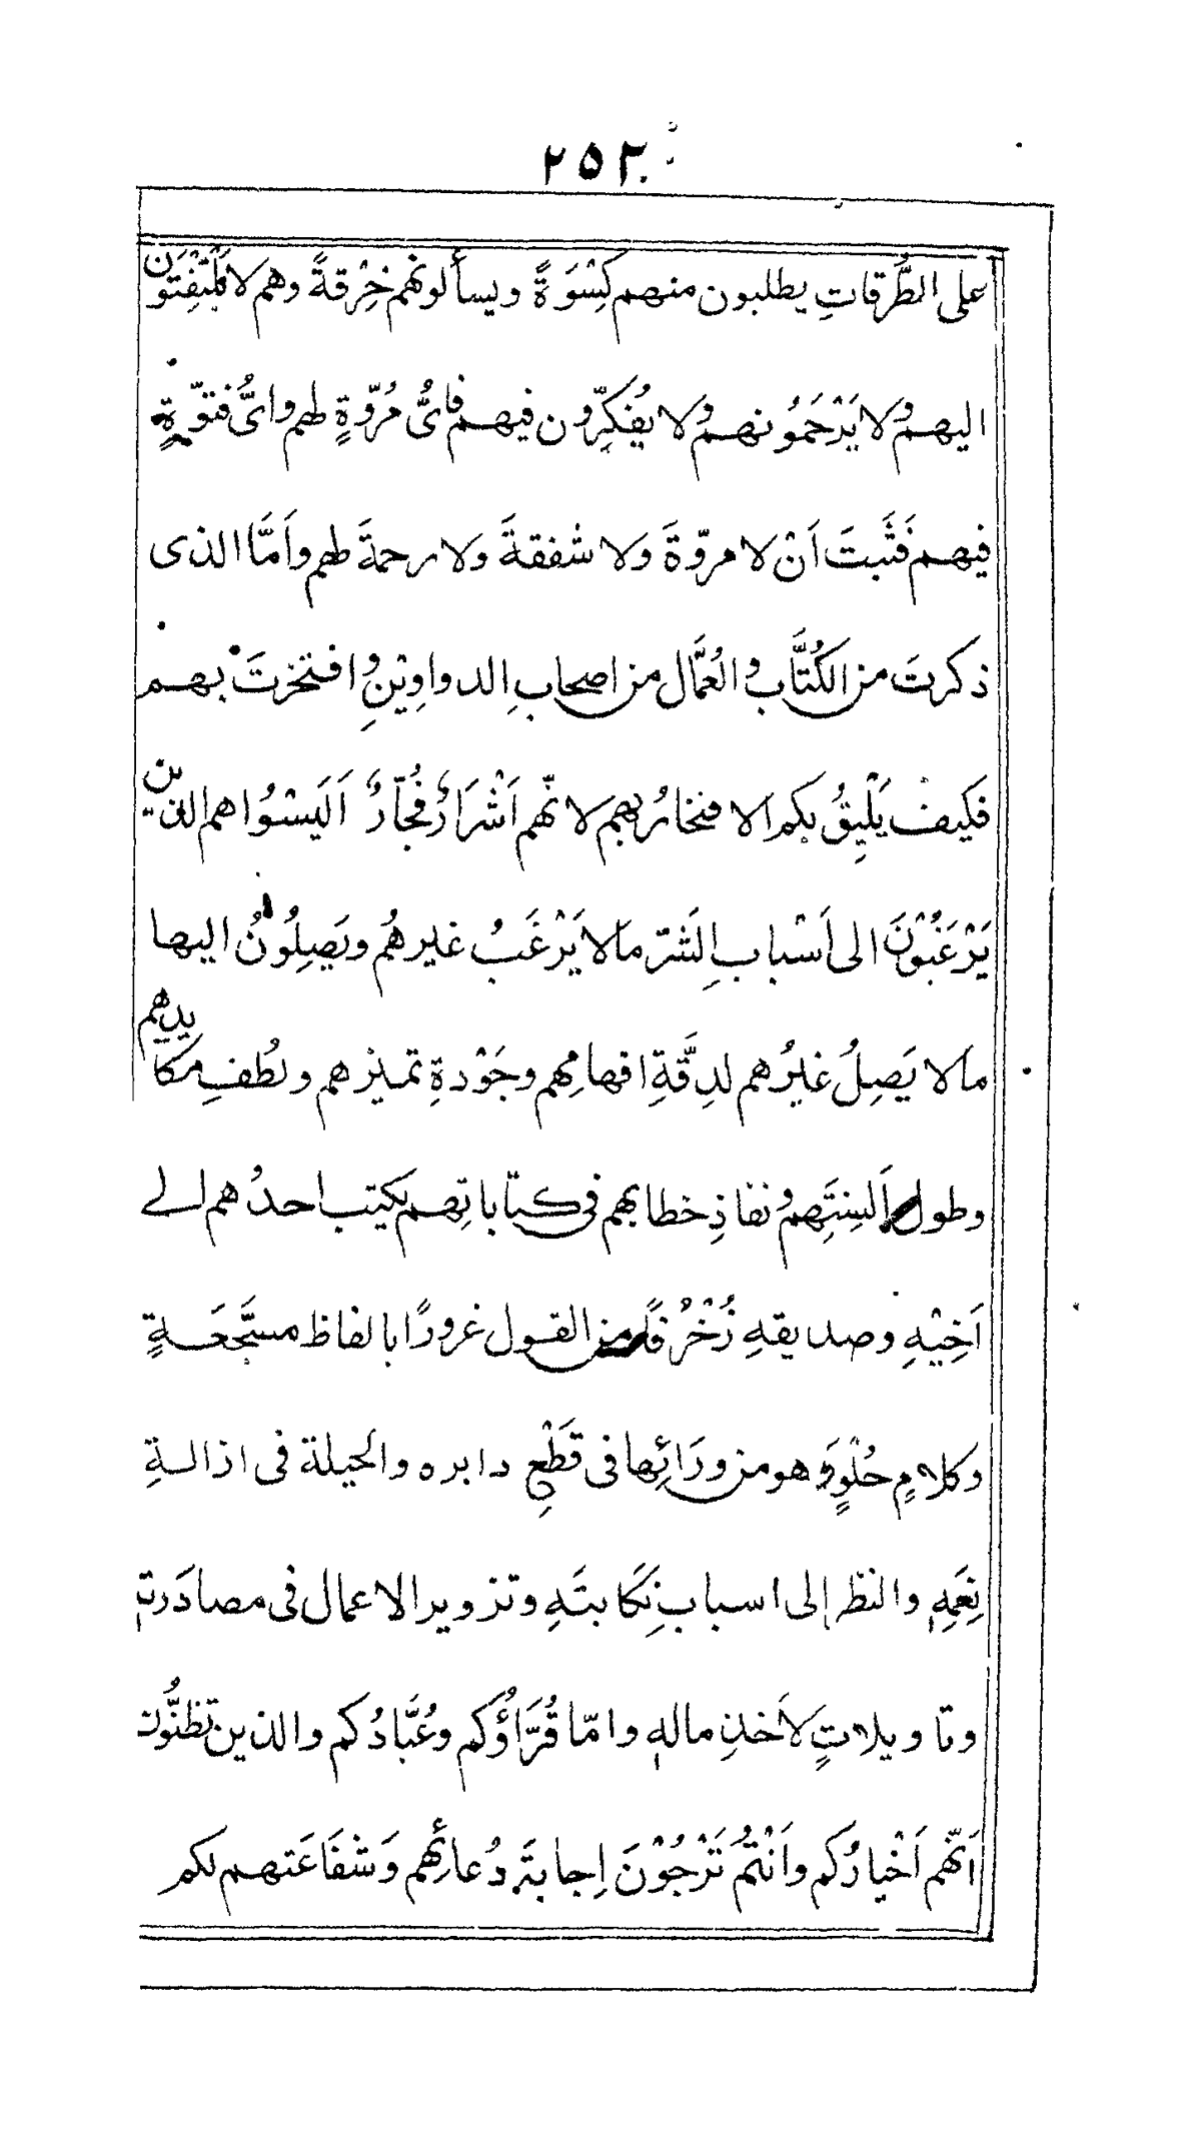 ٢٥٣
على الطُّرقاتِ يطلبون منهم كِسْوَةً ويسألونهم خِرْقةً وهم لا يَلْتَفِتُون
اليهم ولا يَرْحَمُونهم ولا يُفكِّرون فيهم فاىُّ مُرّوةٍ لهم واىُّ فتوّةٍ
فيهم فَثَبتَ اَنْ لا مروّةَ ولا شفقةَ ولا رحمةَ لهم واَمَّا الذى
ذكرتَ من الكُتَّاب والعُمَّال من اصحابِ الدواوِيْنِ وافتخرتَ بهم
فكيف يَلْيِقُ بكم الافتخارُ بهم لانّهم اَشْرَارٌ فُجّارٌ اَلَيسُوا هم الذين
يَرْغَبُوْنَ الى اَسْبابِ الشرّ مالا يَرْغَبُ غيرهُم ويَصِلُونُ اليها
مالا يَصِلُ غيرُهم لدِقَّةِ افهامِهم وجَوْدةِ تميزهم ولُطفِ مكايدهم
وطول اَلسِنتِهم ونفاذِ خطابهم فى كتاباتِهم يكتب احدُهم الے
اَخِيْهِ وصديقهِ زُخْرُفًا من القول غرورًا بالفاظ مسَجَّعَةٍ
وكلامٍ حُلْوٍ وَهو من ورَائِها فى قَطْعِ دابره والحيلة فى ازالةِ
نِعَمِهٖ والنظر الى اسباب نِكَابتَهِ وتزوير الاعمال فى مصادَرتهٖ
وتاويلاتٍ لاَخذِ مالهٖ وامّا قُرَّاؤُكم وعُبَّادُكم والذين تظنُّون
اَنّهم اَخْيارُكم واَنْتُم تَرْجُوْنَ اِجابتَه دُعائِهم وَشفَاعَتهم لكم